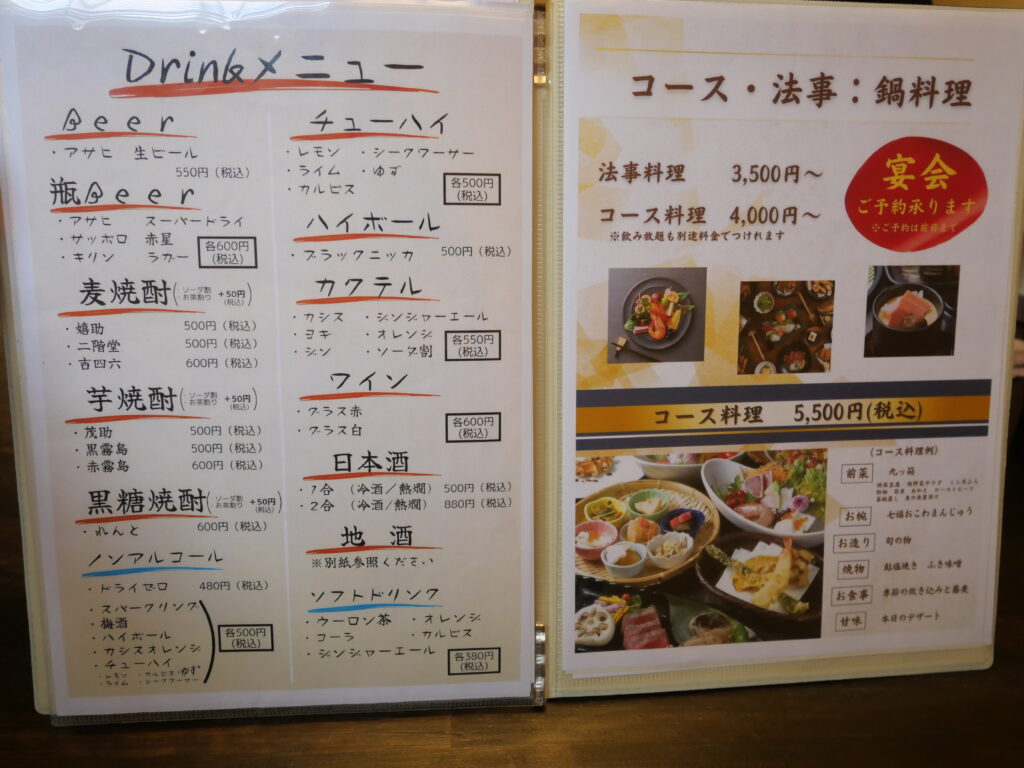 Drinkメニュー
Beer
・アサヒ 生ビール
550円(税込)
瓶Beer
・アサヒ スーパードライ
・サッポロ 赤星
・キリン ラガー
各600円
(税込)
麦焼酎(・ソーダ割 ・お茶割り +50円(税込))
・嬉助 500円(税込)
・二階堂 500円(税込)
・吉四六 600円(税込)
芋焼酎(・ソーダ割 ・お茶割り +50円(税込))
・茂助 500円(税込)
・黒霧島 500円(税込)
・赤霧島 600円(税込)
黒糖焼酎(・ソーダ割 ・お茶割り +50円(税込))
・れんと 600円(税込)
ノンアルコール
・ドライゼロ 480円(税込)
・スパークリング
・梅酒
・ハイボール
・カシスオレンジ
・チューハイ
・レモン ・カルピス ・ゆず
・ライム ・シークワーサー
各500円
(税込)
チューハイ
・レモン ・シークワーサー
・ライム ・ゆず
・カルピス
各500円
(税込)
ハイボール
・ブラックニッカ 500円(税込)
カクテル
・カシス ・ジンジャーエール
・ヨキ ・オレンジ
・ジン ・ソーダ割
各550円
(税込)
ワイン
・グラス赤
・グラス白
各600円
(税込)
日本酒
・1合 (冷酒/熱燗) 500円(税込)
・2合 (冷酒/熱燗) 880円(税込)
地 酒
※別紙参照ください
ソフトドリンク
・ウーロン茶 ・オレンジ
・コーラ ・カルピス
・ジンジャーエール
各380円
(税込)
コース・法事:鍋料理
法事料理 3,500円〜
コース料理 4,000円〜
※飲み放題も別途料金でつけれます
宴会
ご予約承ります
※ご予約は前日まで
コース料理 5,500円(税込)
(コース料理例)
前菜 九ッ箱
お椀 七福おこわまんじゅう
お造り 旬の物
焼物 鮎塩焼き ふき味噌
お食事 季節の炊き込みと蕎麦
甘味 本日のデザート